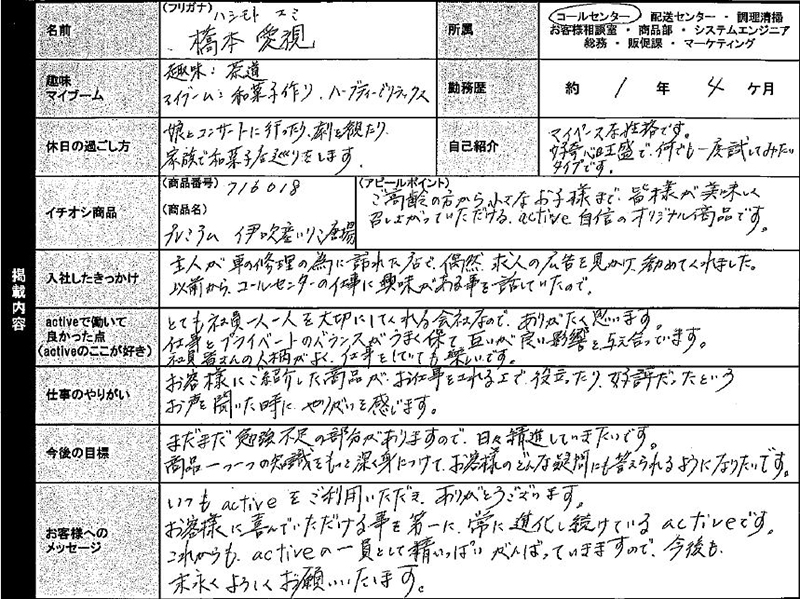 掲載内容
名前
(フリガナ) ハシモト エミ
橋本 愛視
所属
コールセンター ・ 配送センター ・ 調理清掃
お客様相談室 ・ 商品部 ・ システムエンジニア
総務 ・ 販促課 ・ マーケティング
趣味
マイブーム
趣味：茶道
マイブーム：和菓子作り、ハーブティーでリラックス
勤務歴
約 1 年 4 ケ月
休日の過ごし方
娘とコンサートに行ったり、劇を観たり、
家族で和菓子店巡りをします。
自己紹介
マイペースな性格です。
好奇心旺盛で、何でも一度試してみたい
タイプです。
イチオシ商品
(商品番号) 716018
(商品名)
プレミアム 伊吹産いりこ
(アピールポイント)
ご高齢の方から小さなお子様まで、皆様が美味しく
召し上がっていただける、active自信のオリジナル商品です。
入社したきっかけ
主人が車の修理の為に訪れた店で、偶然、求人の広告を見かけ、勧めてくれました。
以前から、コールセンターの仕事に興味がある事を話していたので。
activeで働いて
良かった点
(activeのここが好き)
とても社員一人一人を大切にしてくれる会社なので、ありがたく思います。
仕事とプライベートのバランスがうまく保て、互いが良い影響を与え合っています。
社員皆さんの人柄がよく、仕事をしていても楽しいです。
仕事のやりがい
お客様にご紹介した商品が、お仕事をされる上で、役立ったり、好評だったという
お声を聞いた時に、やりがいを感じます。
今後の目標
まだまだ勉強不足の部分がありますので、日々精進していきたいです。
商品一つ一つの知識をもっと深く身につけて、お客様のどんな疑問にも答えられるようになりたいです。
お客様への
メッセージ
いつもactiveをご利用いただき、ありがとうございます。
お客様に喜んでいただける事を第一に、常に進化し続けているactiveです。
これからも、activeの一員として精いっぱいがんばっていきますので、今後も、
末永くよろしくお願いいたします。